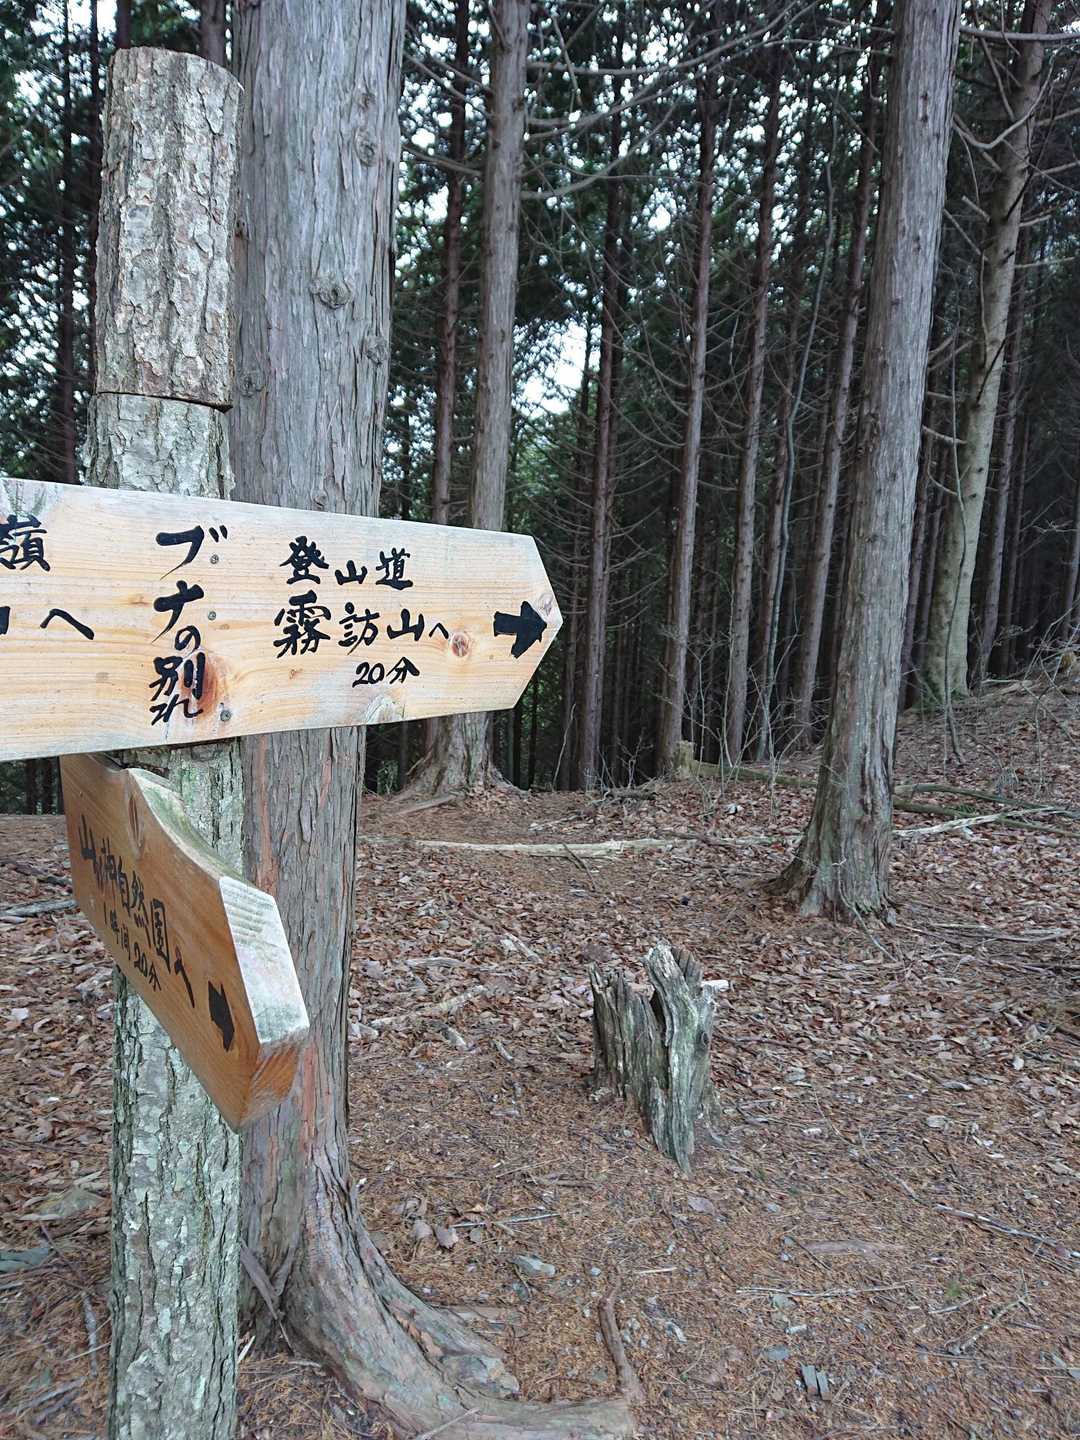 嶺
口へ
ブナの別れ
登山道
霧訪山へ
20分
山ノ神自然園へ
1時間20分